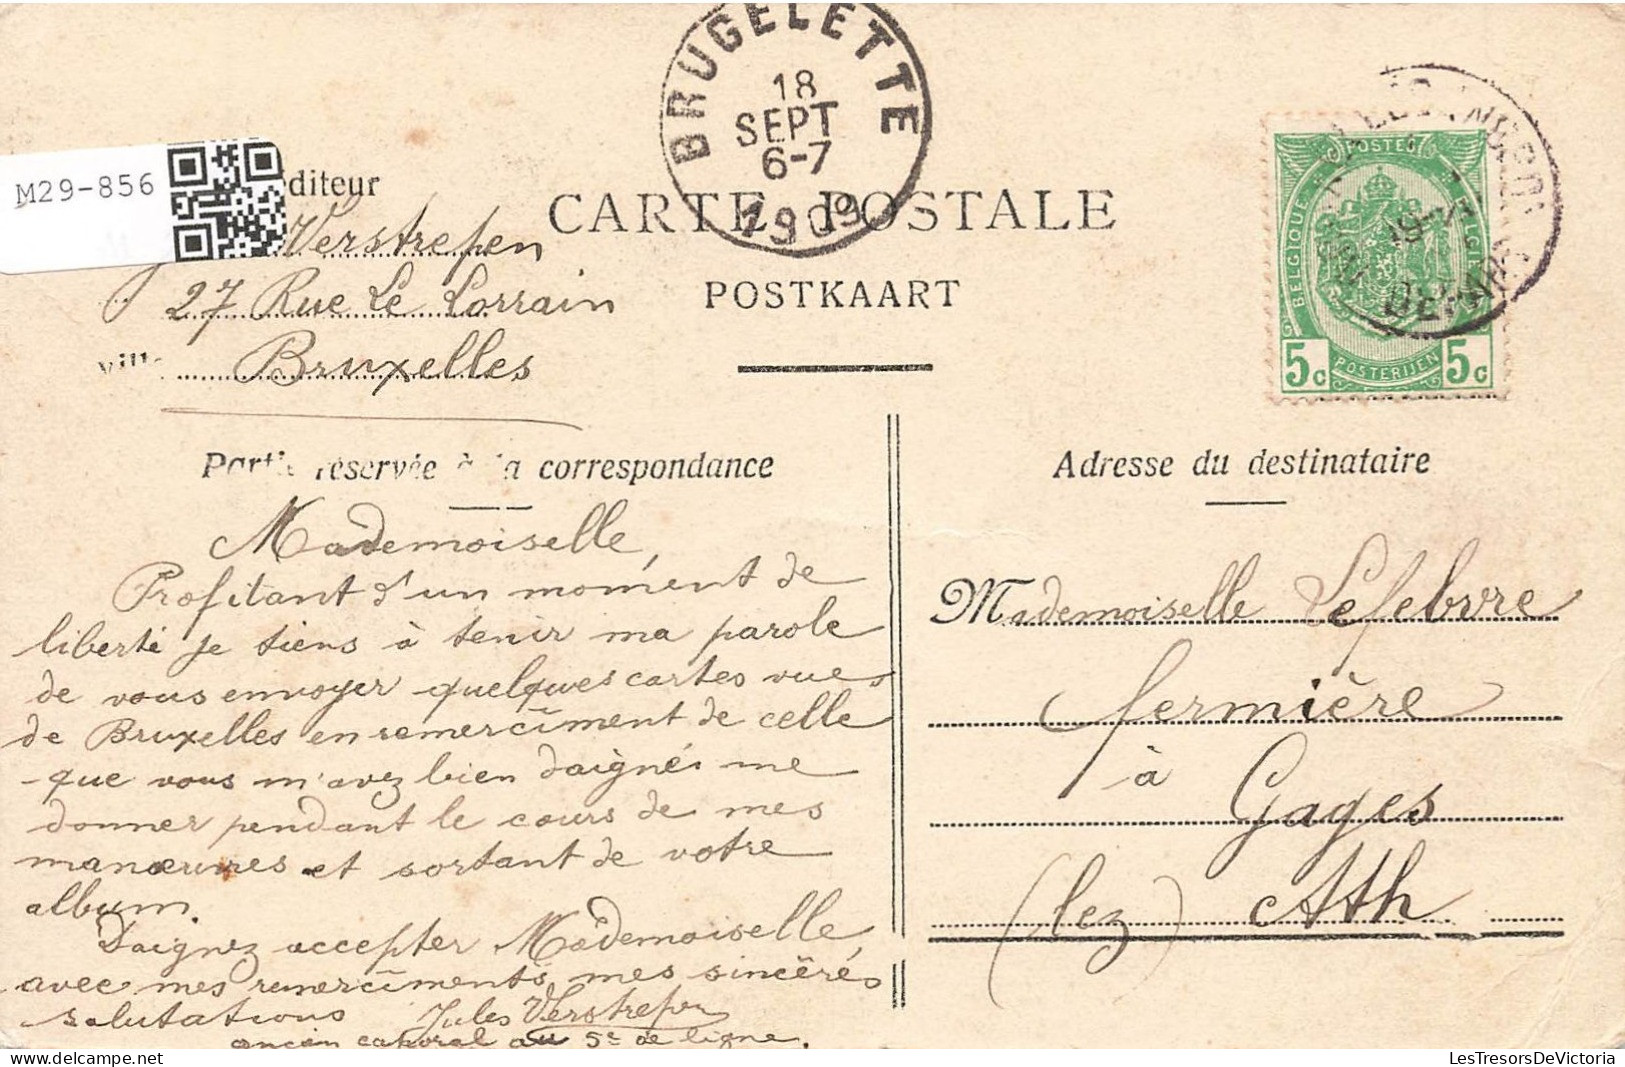 BRUGELETTE
18
SEPT
6-7
1909
M29-856
diteur
CARTE POSTALE
Verstrepen
27 Rue Le Lorrain
POSTKAART
Bruxelles
POSTES
BELGIQUE
BELGIE
5c POSTERIJEN 5c
Partie réservée à la correspondance
Adresse du destinataire
Mademoiselle,
Profitant d'un moment de
liberté je tiens à tenir ma parole
de vous envoyer quelques cartes vues
de Bruxelles en remercîment de celle
que vous m'avez bien daigné me
donner pendant le cours de mes
manœuvres et sortant de votre
album.
Daignez accepter Mademoiselle,
avec mes remercîments mes sincères
salutations Jules Verstrepen
ancien caporal au 5e de ligne.
Mademoiselle Lefebvre
fermière
à Gages
(lez) Ath
LesTresorsDeVictoria
https://www.delcampe.net/fr/collections/store/lestresorsdevictoria